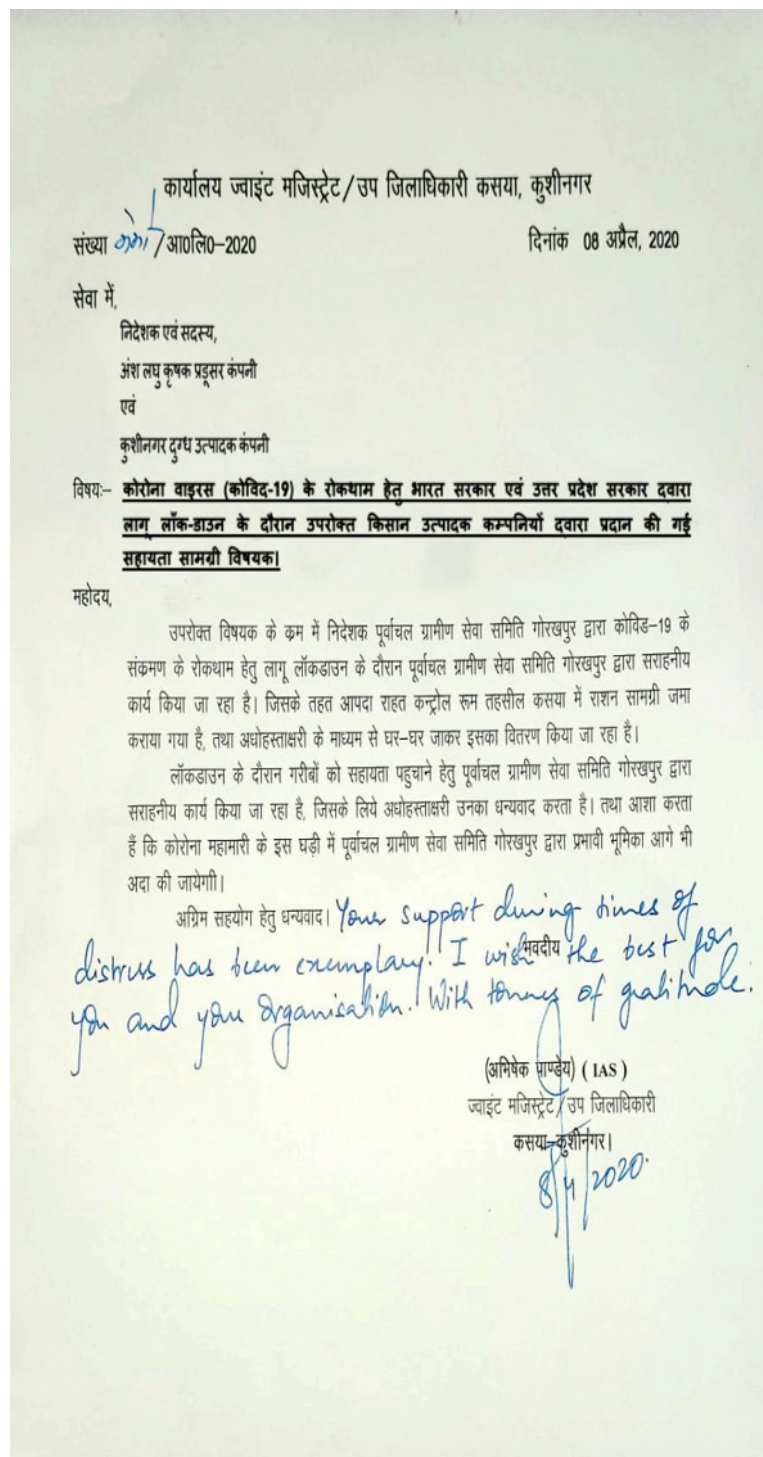 कार्यालय ज्वाइंट मजिस्ट्रेट/उप जिलाधिकारी कसया, कुशीनगर
संख्या /आ0लि0-2020 दिनांक 08 अप्रैल, 2020
सेवा में,
निदेशक एवं सदस्य,
अंश लघु कृषक प्रडूसर कंपनी
एवं
कुशीनगर दुग्ध उत्पादक कंपनी
विषयः– कोरोना वाइरस (कोविद-19) के रोकथाम हेतु भारत सरकार एवं उत्तर प्रदेश सरकार दवारा
लागू लॉक-डाउन के दौरान उपरोक्त किसान उत्पादक कम्पनियों दवारा प्रदान की गई
सहायता सामग्री विषयक।
महोदय,
उपरोक्त विषयक के क्रम में निदेशक पूर्वाचल ग्रामीण सेवा समिति गोरखपुर द्वारा कोविड–19 के
संक्रमण के रोकथाम हेतु लागू लॉकडाउन के दौरान पूर्वाचल ग्रामीण सेवा समिति गोरखपुर द्वारा सराहनीय
कार्य किया जा रहा है। जिसके तहत आपदा राहत कन्ट्रोल रूम तहसील कसया में राशन सामग्री जमा
कराया गया है, तथा अधोहस्ताक्षरी के माध्यम से घर–घर जाकर इसका वितरण किया जा रहा है।
लॉकडाउन के दौरान गरीबों को सहायता पहुचाने हेतु पूर्वाचल ग्रामीण सेवा समिति गोरखपुर द्वारा
सराहनीय कार्य किया जा रहा है, जिसके लिये अधोहस्ताक्षरी उनका धन्यवाद करता है। तथा आशा करता
हैं कि कोरोना महामारी के इस घड़ी में पूर्वाचल ग्रामीण सेवा समिति गोरखपुर द्वारा प्रभावी भूमिका आगे भी
अदा की जायेगाी।
अग्रिम सहयोग हेतु धन्यवाद। Your support during times of
distress has been exemplary. I wish भवदीय the best for
you and your Organisation. With tonnes of gratitude.
(अभिषेक पाण्डेय) ( IAS )
ज्वाइंट मजिस्ट्रेट/उप जिलाधिकारी
कसया–कुशीनगर।
8/4/2020.